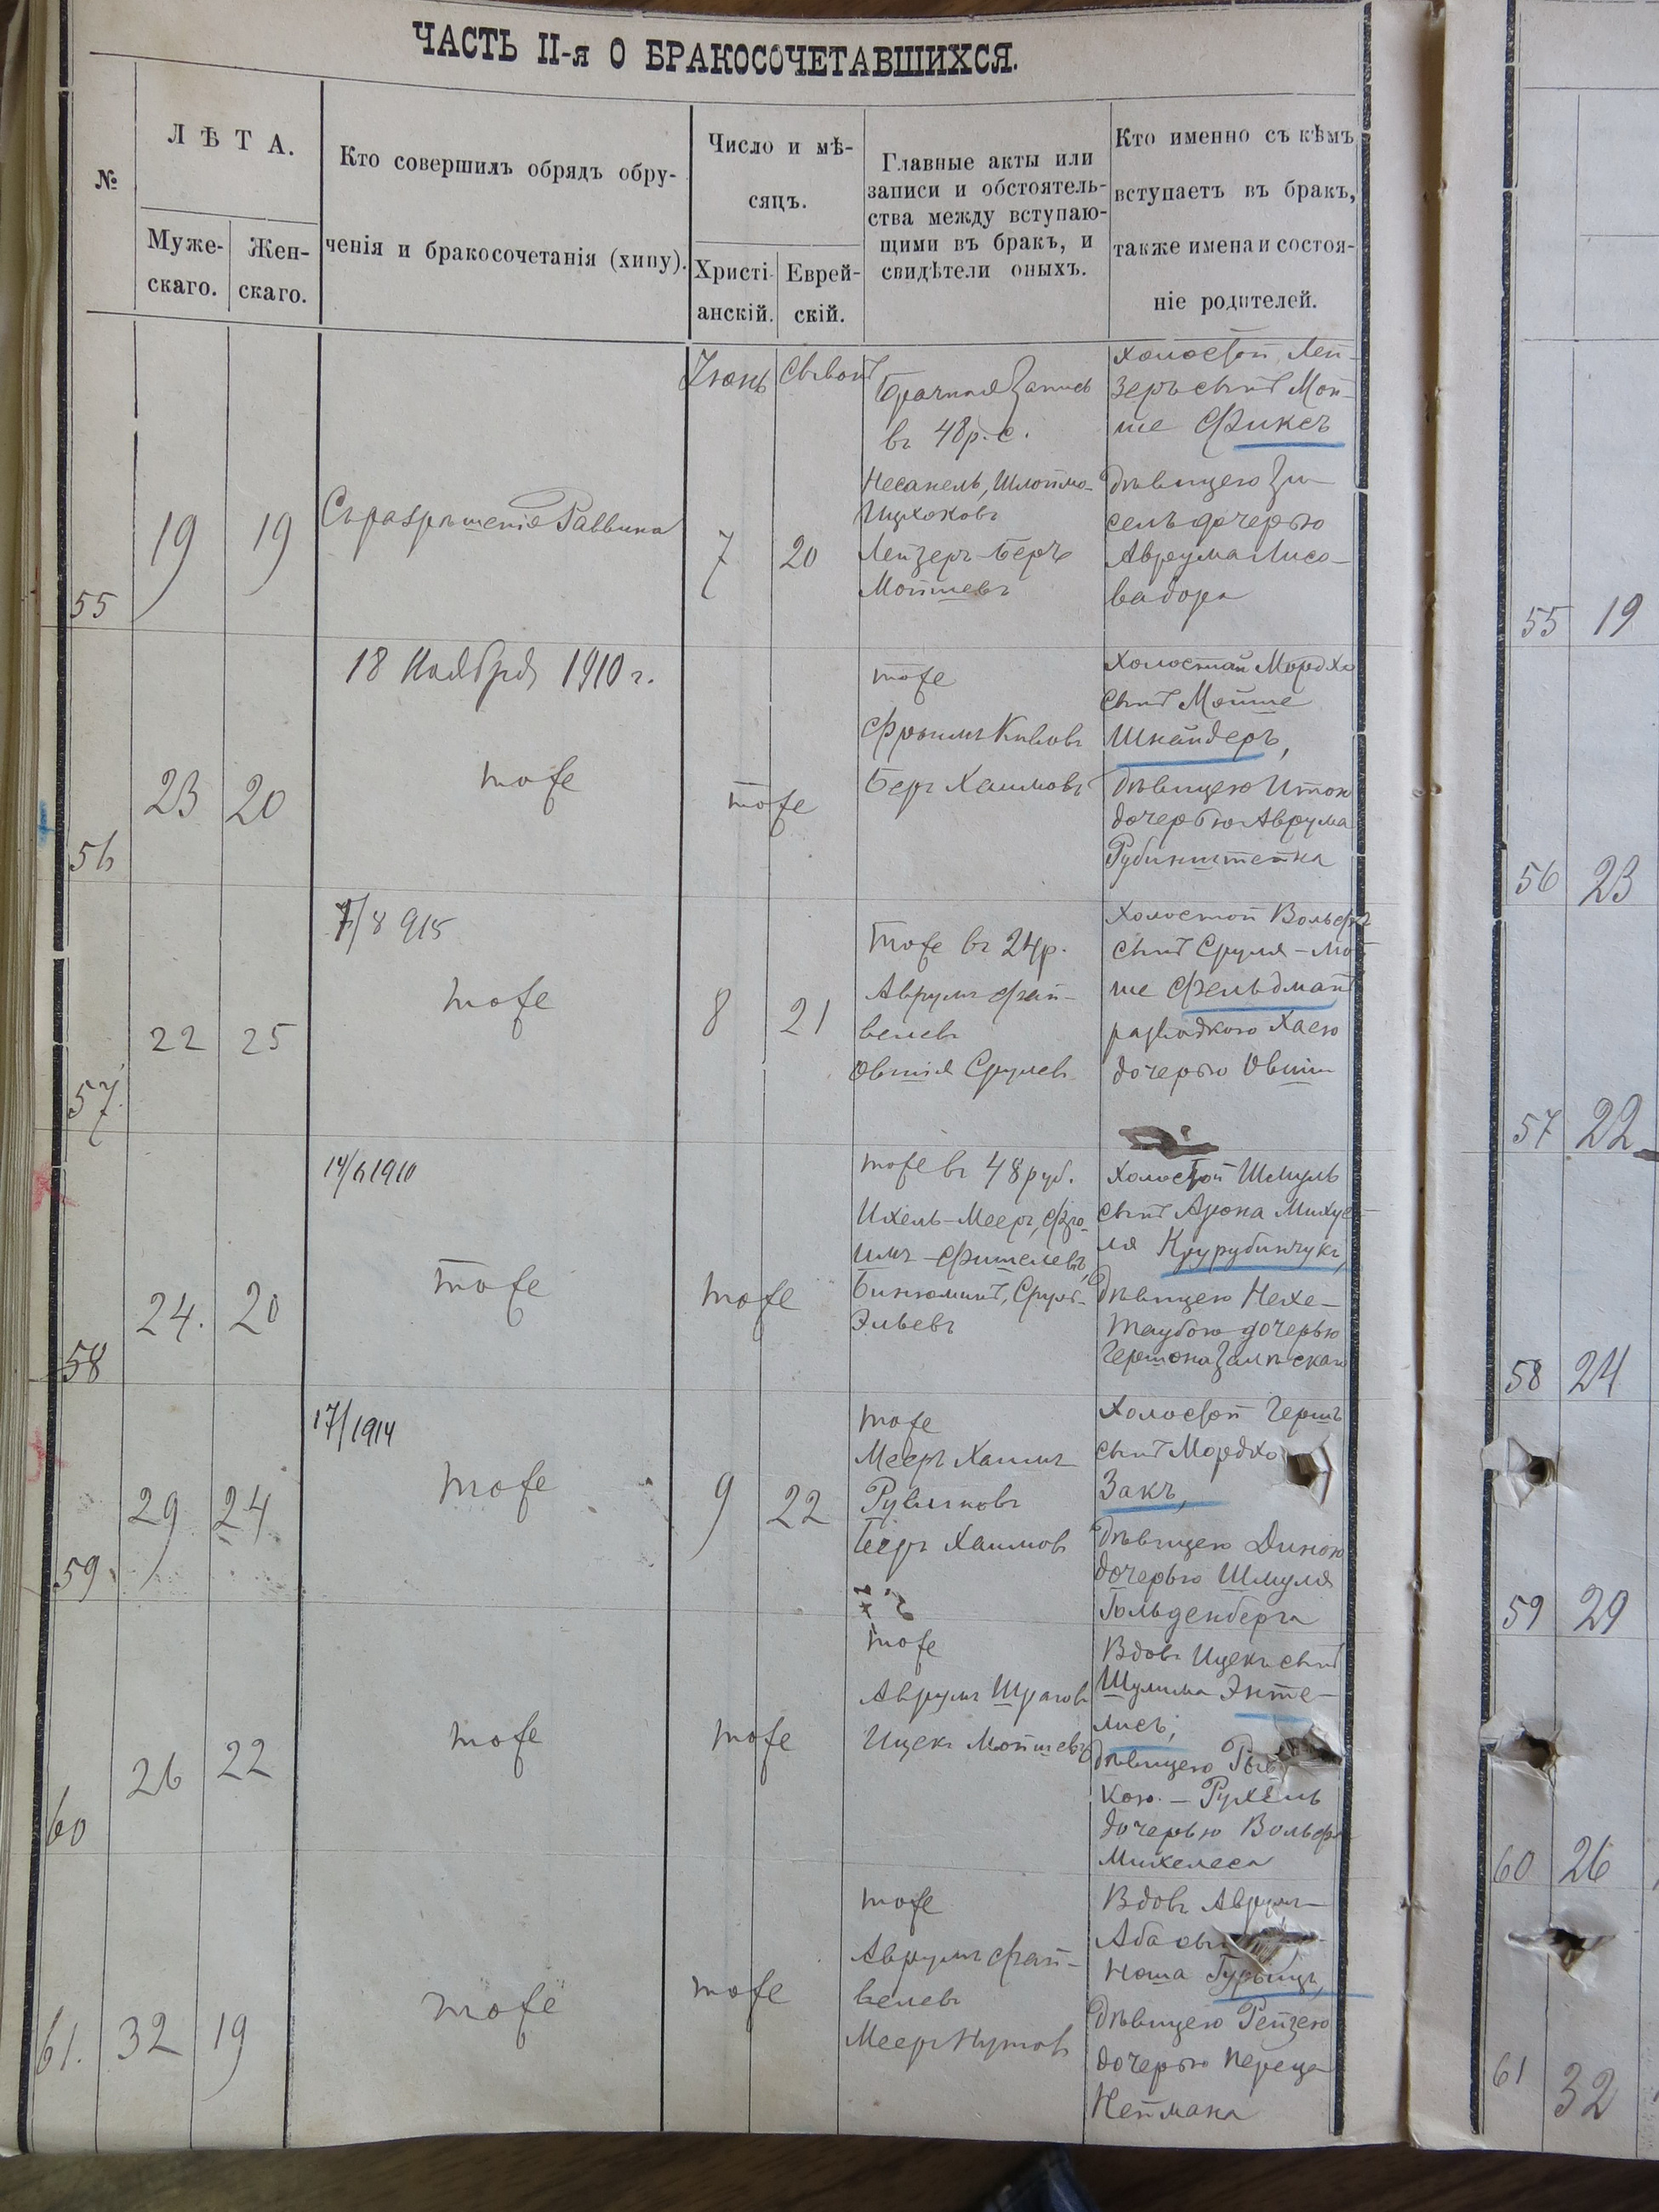 ЧАСТЬ II-я О БРАКОСОЧЕТАВШИХСЯ.
№
ЛѢТА.
Муже-
скаго.
Жен-
скаго.
Кто совершилъ обрядъ обру-
ченія и бракосочетанія (хупу).
Число и мѣ-
сяцъ.
Христі-
анскій.
Еврей-
скій.
Главные акты или
записи и обстоятель-
ства между вступаю-
щими въ бракъ, и
свидѣтели оныхъ.
Кто именно съ кѣмъ
вступаетъ въ бракъ,
также имена и состоя-
ніе родителей.
55
19
19
Съ разрѣшенія Раввина
Іюнь
Сывонъ
7
20
Брачная Запись
въ 48 р. с.
Несанель, Шлоймо-
Ицхоковъ
Лейзеръ-Беръ
Мойшевъ
холостой Лей-
зеръ сынъ Мой-
ше Фиксъ
дѣвицею Зи-
сель дочерью
Аврума Лисо-
вадора
18 Ноября 1910 г.
56
23
20
тоже
тоже
тоже
Фроимъ Кивовъ
Беръ Хаимовъ
Холостой Мордхо
сынъ Мойше
Шнайдеръ,
дѣвицею Итою
дочерью Аврума
Рубинштейна
7/8 915
57.
22
25
тоже
8
21
тоже въ 24 р.
Аврумъ Фай-
велевъ
Овшія Срулевъ
Холостой Вольфъ
сынъ Сруля-Мой
ше Фельдманъ
разводкою Хаею
дочерью Овшіи
14/6 1910
58
24.
20
тоже
тоже
тоже въ 48 руб.
Ихель-Мееръ, Фро-
имъ-Фишелевъ,
Бинюминъ, Сруль-
Эльевъ
холостой Шмуль
сынъ Арона Михуе-
ля
дѣвицею Нехе-
Таубою дочерью
Гершона
17/1914
59.
29
24
тоже
9
22
тоже
Мееръ Хаимъ
Рувиновъ
Беръ Хаимовъ
Холостой Гершъ
сынъ Мордхо
Закъ,
дѣвицею Диною
дочерью Шмуля
Гольденберга
60
26
22
тоже
тоже
тоже
Аврумъ Шраговъ
Ицекъ Мойшевъ
Вдовъ Ицекъ сынъ
Шулима Энте-
лисъ,
дѣвицею
кою. - Рухель
дочерью Вольфа
Михелеса
61.
32
19
тоже
тоже
тоже
Аврумъ Фай-
велевъ
Мееръ Нутовъ
Вдовъ Аврумъ-
Аба
Ноша Гурвицъ,
дѣвицею Рейзею
дочерью Переца
Неймана
55 19
56 23
57 22
58 24
59 29
60 26
61 32